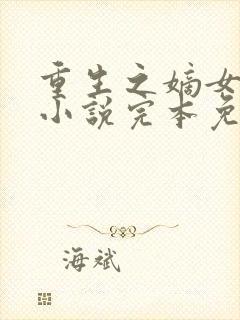 重生之嫡女
小说完本免
海斌